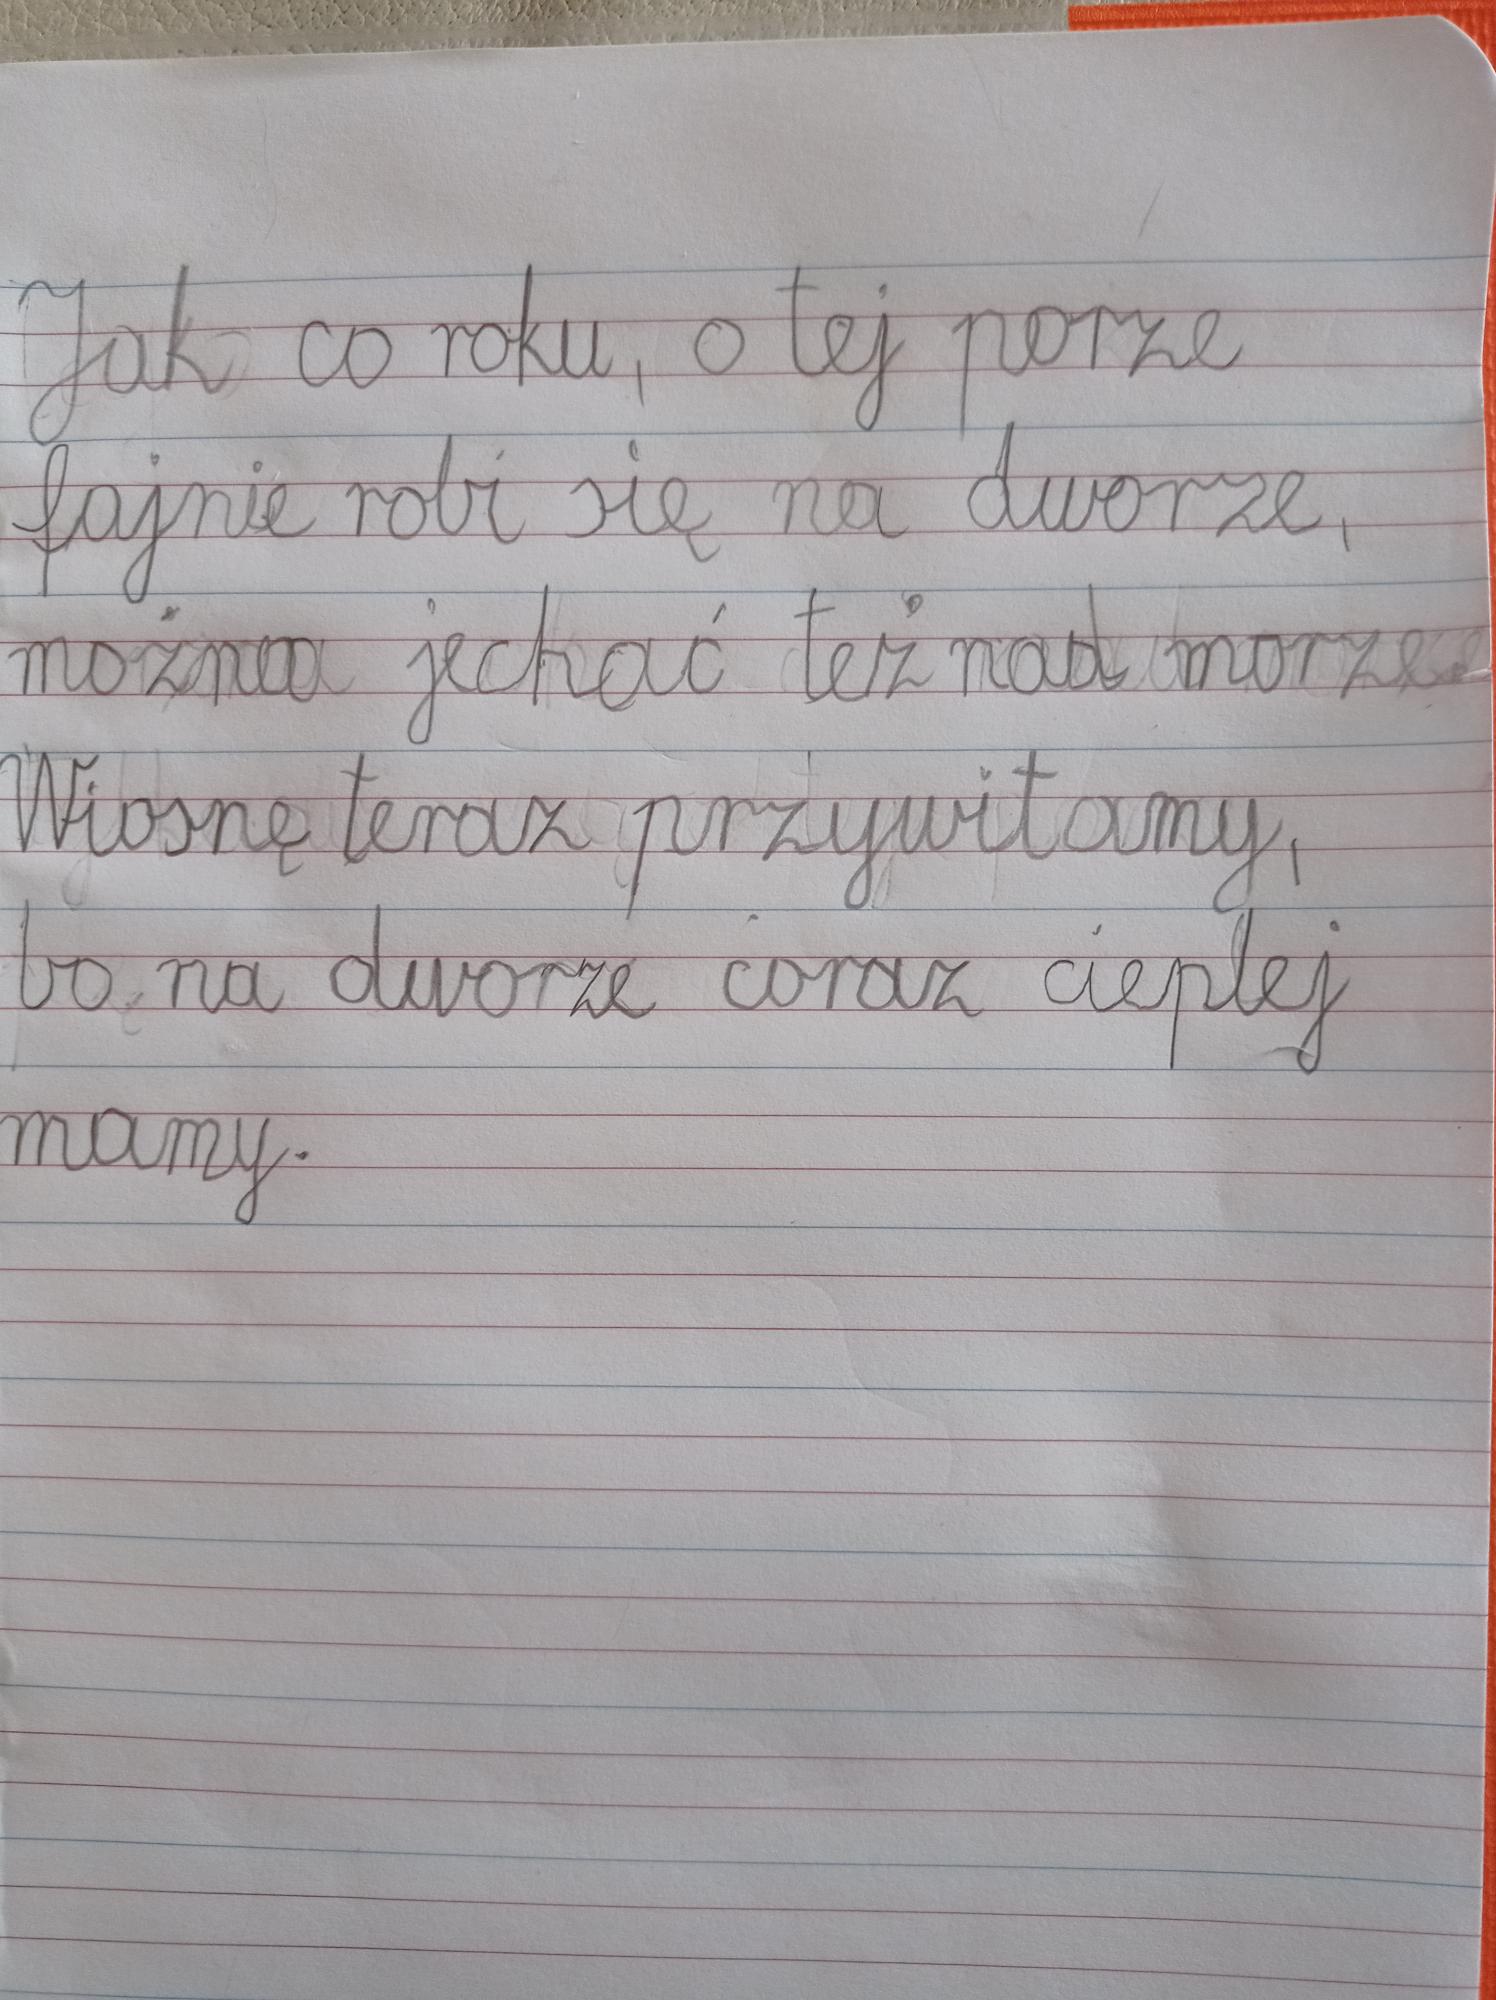 Jak co roku, o tej porze
fajnie robi się na dworze,
można jechać też nad morze.
Wiosnę teraz przywitamy,
bo na dworze coraz cieplej
mamy.